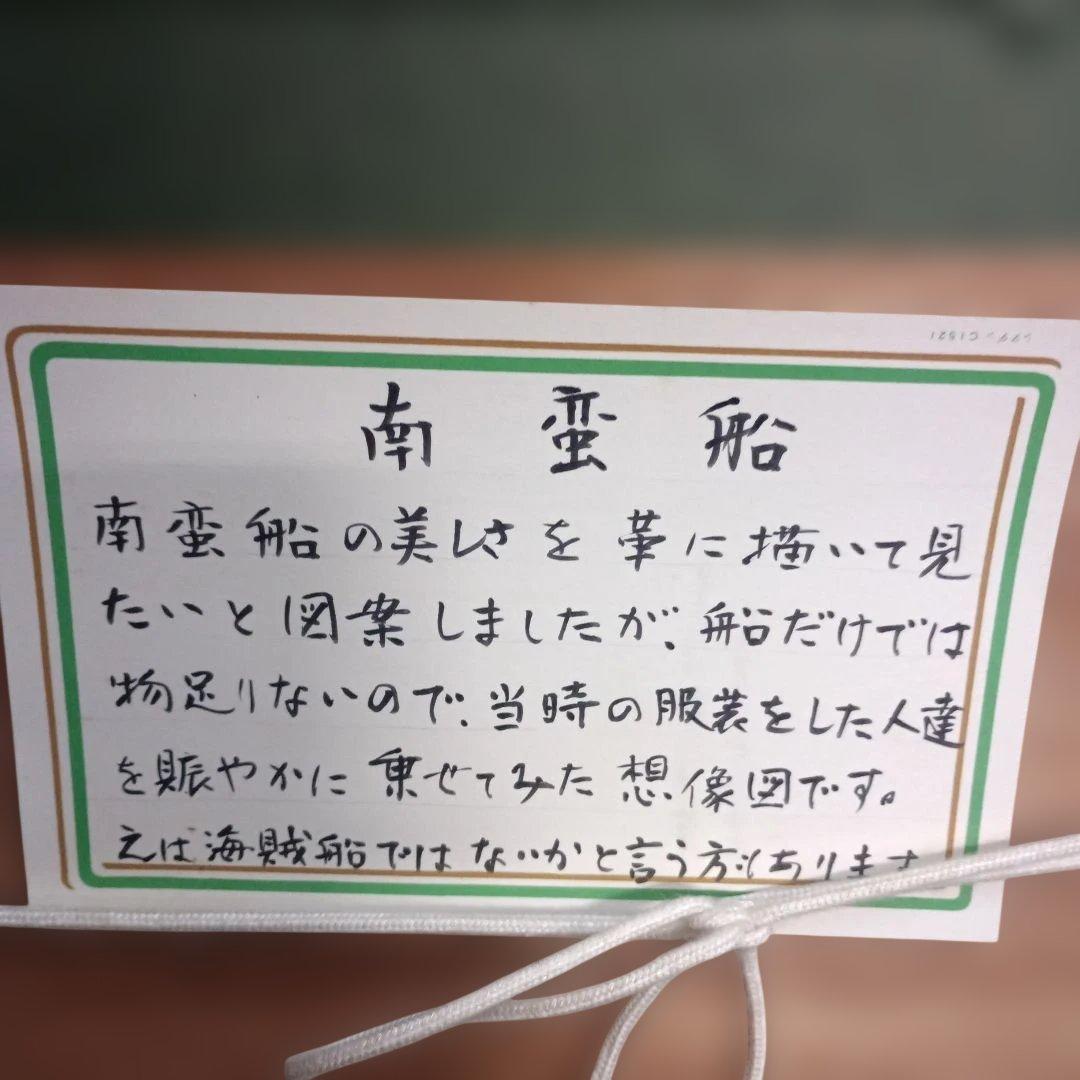 南蛮船
南蛮船の美しさを革に描いて見
たいと図案しましたが、船だけでは
物足りないので、当時の服装をした人達
を賑やかに乗せてみた想像図です。
之は海賊船ではないかと言う方もあります